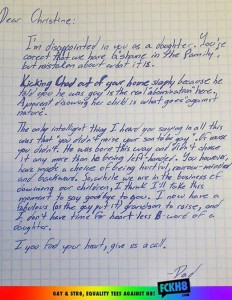 Dear Christine:
I'm disappointed in you as a daughter. You're
correct that we have a "shame in the family",
but mistaken about what it is.
Kicking Chad out of your home simply because he
told you he was gay is the real "abomination" here.
A parent disowning her child is what goes "against
nature".
The only intelligent thing I heard you saying in all this
was that "you didn't raise your son to be gay". Of course
you didn't. He was born this way and didn't choose
it any more than he being left-handed. You however,
have made a choice of being hurtful, narrow-minded
and backward. So, while we are in the business of
disowning our children, I think I'll take this
moment to say goodbye to you. I now have a
fabulous (as the gay put it) grandson to raise, and
I don't have time for heart-less B-word of a
daughter.
If you find your heart, give us a call.
- Dad
GAY & STR8, EQUALITY TEES AGAINST H8! FCKH8.COM